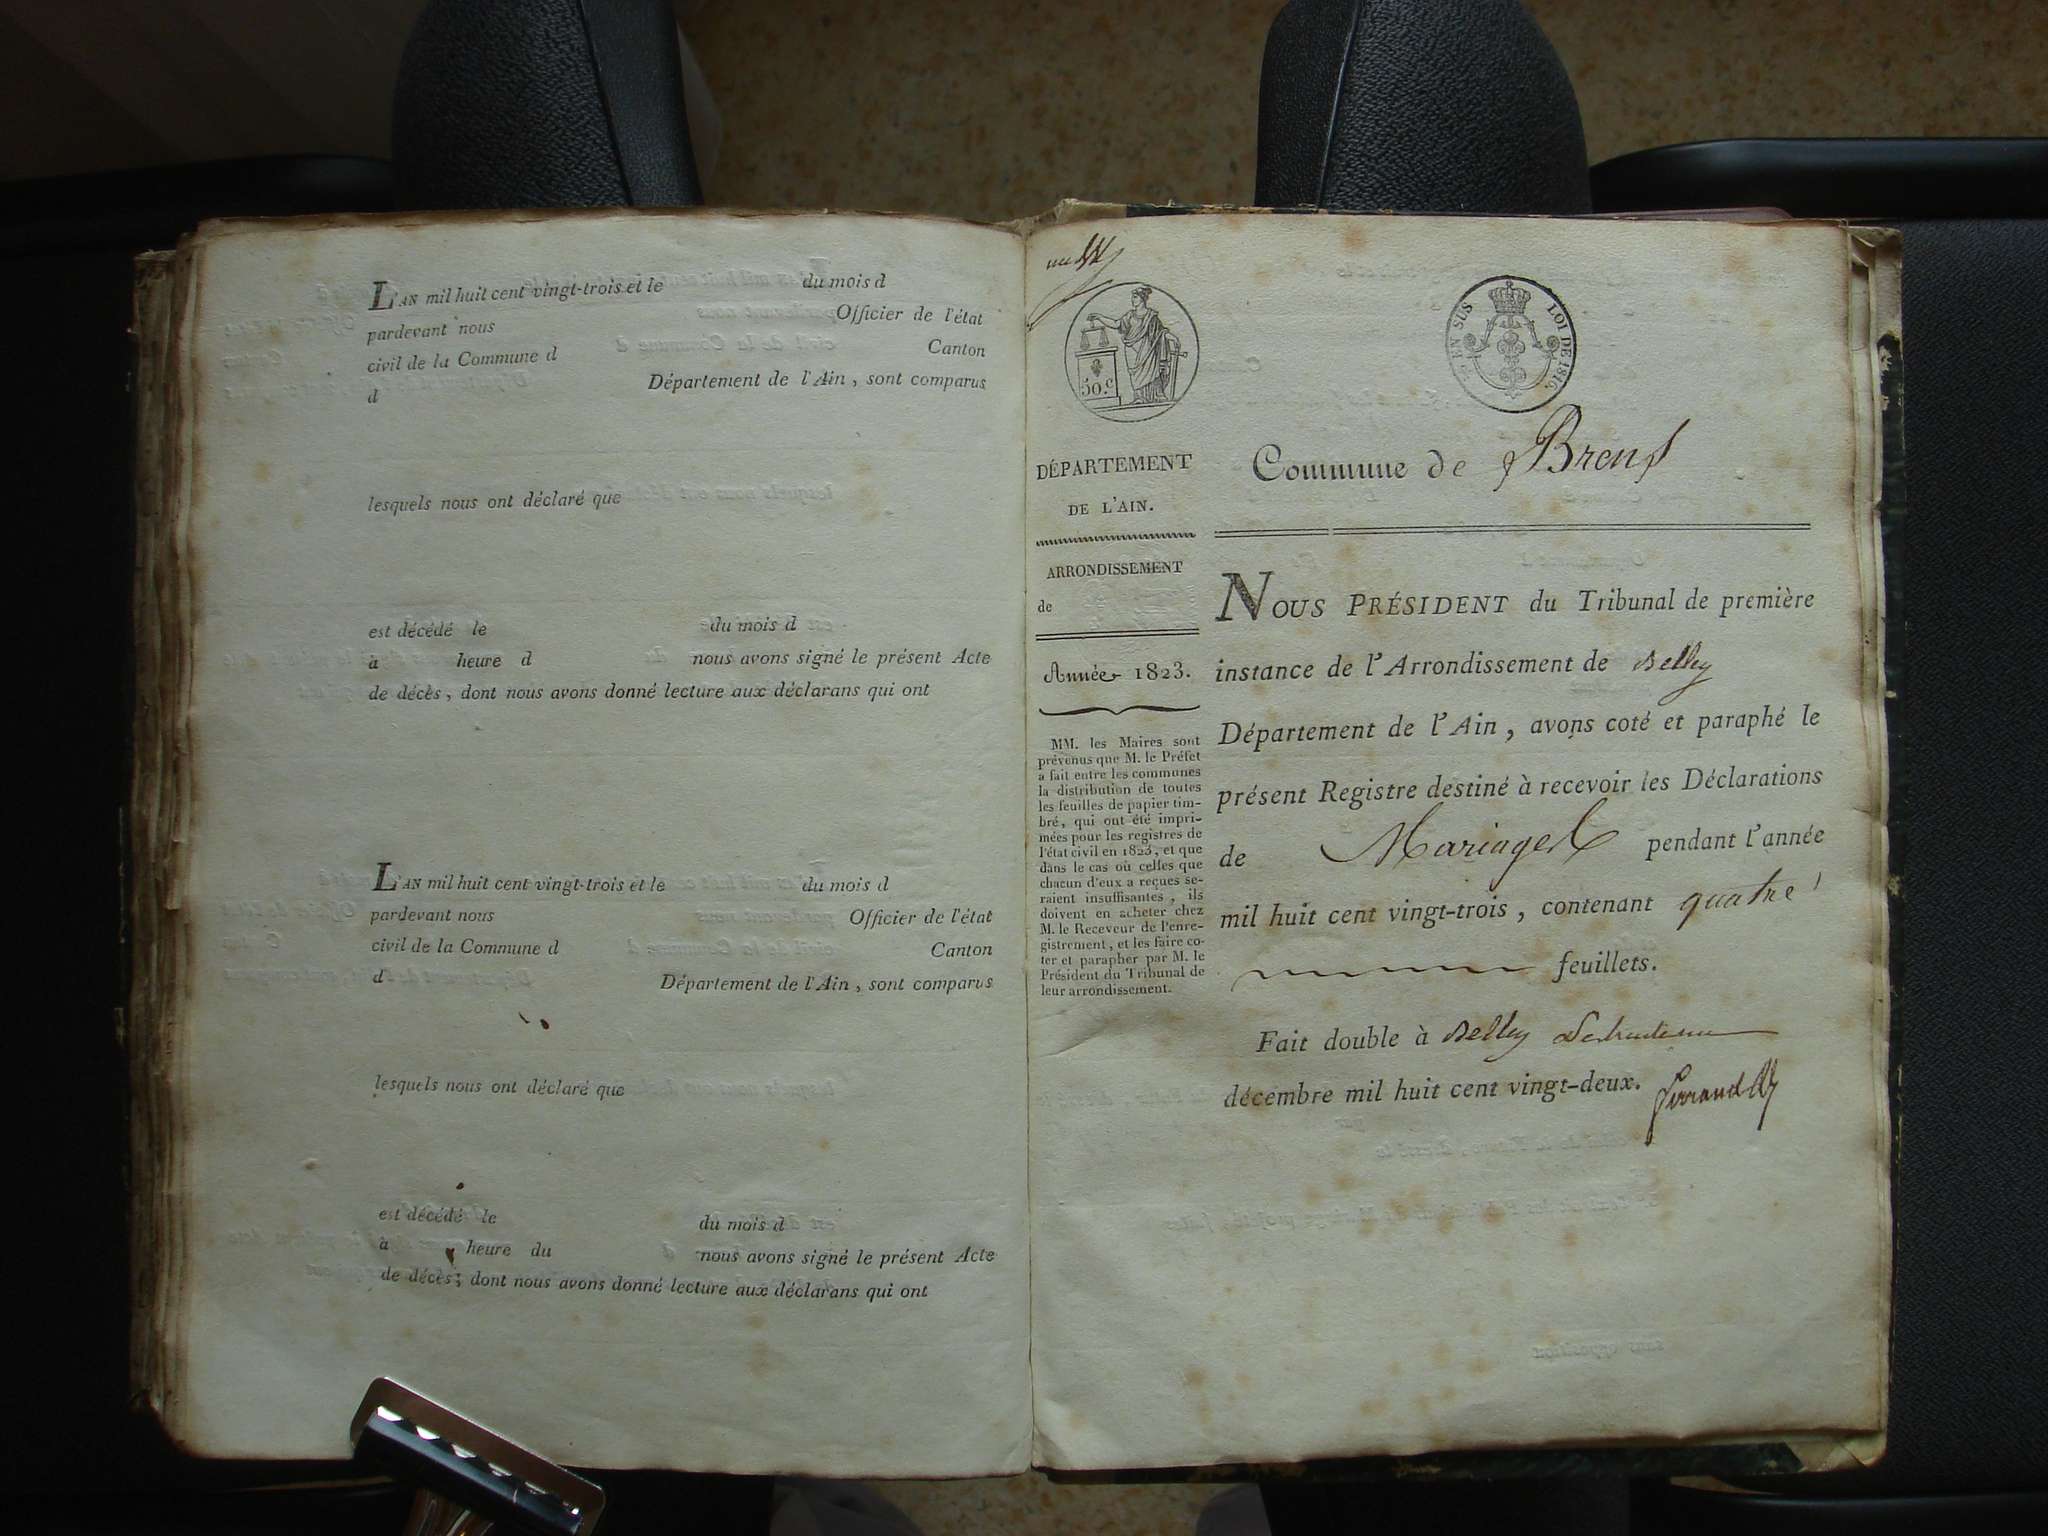 L'AN mil huit cent vingt-trois et le du mois d
pardevant nous Officier de l'état
civil de la Commune d Canton
d Département de l'Ain, sont comparus
lesquels nous ont déclaré que
est décédé le du mois d
à heure d nous avons signé le présent Acte
de décès, dont nous avons donné lecture aux déclarans qui ont
L'AN mil huit cent vingt-trois et le du mois d
pardevant nous Officier de l'état
civil de la Commune d Canton
d Département de l'Ain, sont comparus
lesquels nous ont déclaré que
est décédé le du mois d
à heure du nous avons signé le présent Acte
de décès; dont nous avons donné lecture aux déclarans qui ont
50.c
EN SUS LOI DE 1816.
DÉPARTEMENT
DE L'AIN.
ARRONDISSEMENT
de
Année 1823.
MM. les Maires sont
prévenus que M. le Préfet
a fait entre les communes
la distribution de toutes
les feuilles de papier tim-
bré, qui ont été impri-
mées pour les registres de
l'état civil en 1823, et que
dans le cas où celles que
chacun d'eux a reçues se-
raient insuffisantes, ils
doivent en acheter chez
M. le Receveur de l'enre-
gistrement, et les faire co-
ter et parapher par M. le
Président du Tribunal de
leur arrondissement.
Commune de Brens
NOUS PRÉSIDENT du Tribunal de première
instance de l'Arrondissement de Belley
Département de l'Ain, avons coté et paraphé le
présent Registre destiné à recevoir les Déclarations
de Mariages pendant l'année
mil huit cent vingt-trois, contenant quatre
feuillets.
Fait double à Belley
décembre mil huit cent vingt-deux.